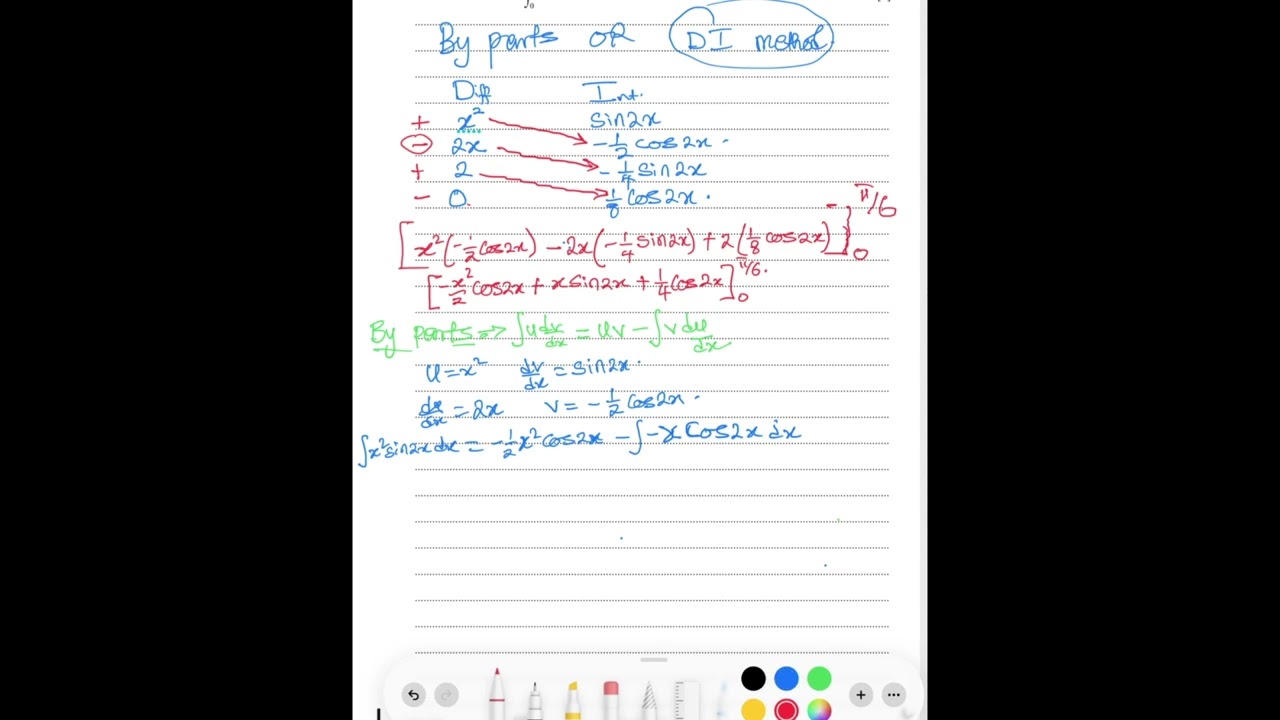 ∫₀
By parts OR DI method
Diff Int.
+ x² sin2x
- 2x -1/2 cos2x
+ 2 -1/4 sin2x
- 0 1/8 cos2x
[x²(-1/2 cos2x) - 2x(-1/4 sin2x) + 2(1/8 cos2x)]₀^π/6
[-x²/2 cos2x + x sin2x + 1/4 cos2x]₀^π/6
By parts => ∫u dv/dx = uv - ∫v du/dx
u = x² dv/dx = sin2x
du/dx = 2x v = -1/2 cos2x
∫x² sin2x dx = -1/2 x² cos2x - ∫-x cos2x dx